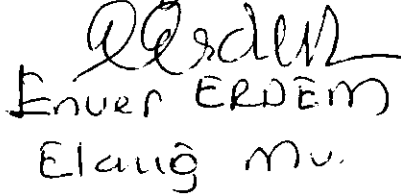 Enver ERDEM
Elazığ Mv.